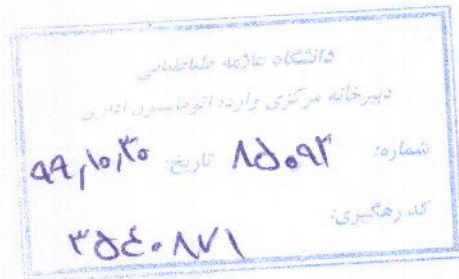 دانشگاه علامه طباطبایی
دبیرخانه مرکزی وارده اتوماسیون اداری
شماره: ۸۵۰۹۳ تاریخ: ۹۹,۱۰,۳۰
کد رهگیری:
۳۵۴۰۸۷۱